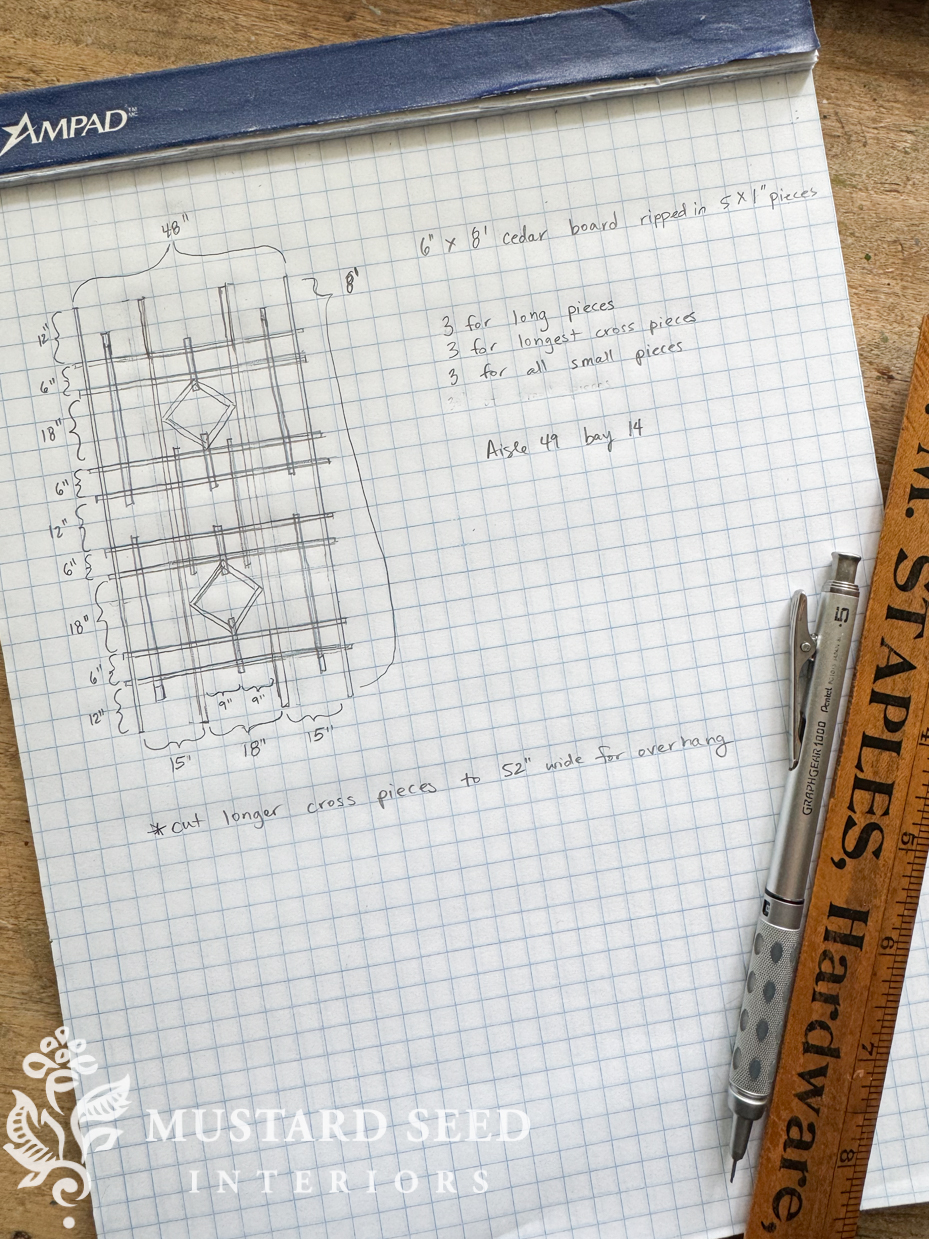 AMPAD™
48"
8'
6" x 8' cedar board ripped in 5 x 1" pieces
12"
6"
18"
6"
12"
6"
18"
6"
12"
3 for long pieces
3 for longest cross pieces
3 for all small pieces
Aisle 49 bay 14
9" 9"
15" 18" 15"
*cut longer cross pieces to 52" wide for overhang
.5
Pentel
GRAPHGEAR 1000
M. STAPLES, Hardware,
5
6
7
8
MUSTARD SEED
INTERIORS